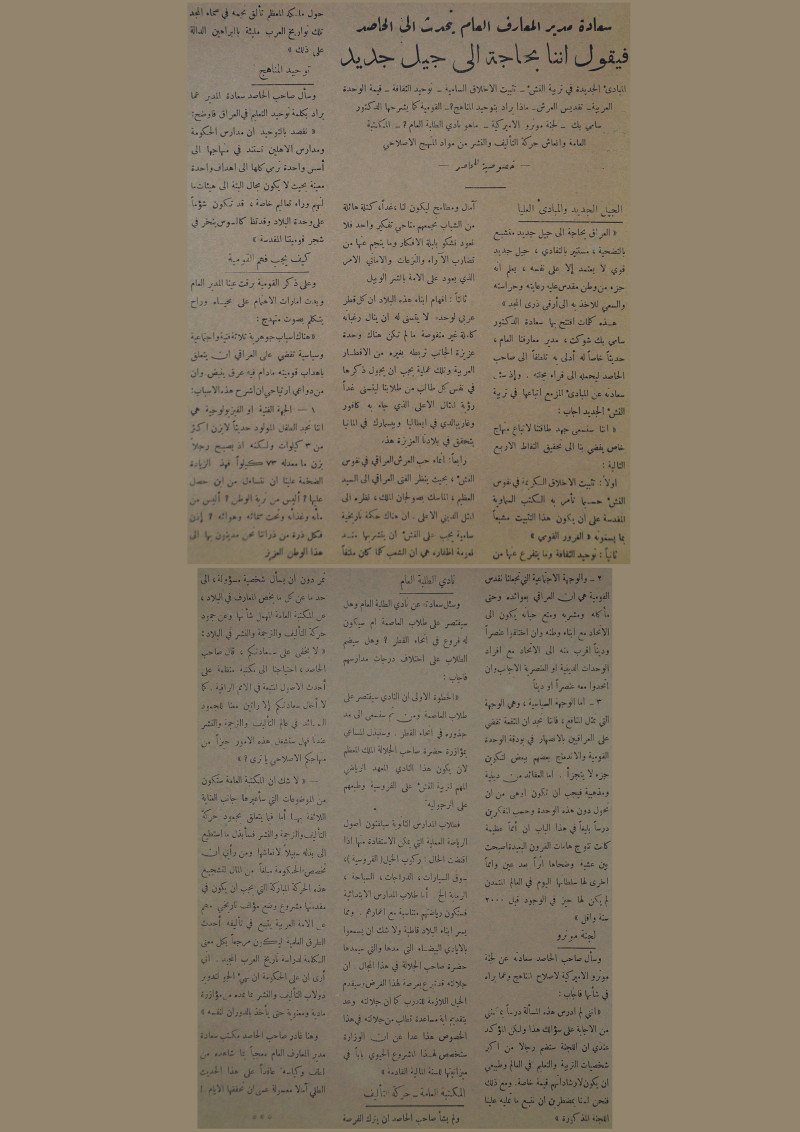 سعادة مدير المعارف العام يتحدث الى الحاصد
فيقول اننا بحاجة الى جيل جديد
المبادئ الجديدة في تربية النشء ـ تثبيت الاخلاق السامية ـ توحيد الثقافة ـ قيمة الوحدة
العربية ـ تقديس العرش ـ ماذا يراد بتوحيد المناهج؟ ـ القومية كما يشرحها الدكتور
سامي بك ـ لجنة مونرو الاميركية ـ ماهو نادي الطلبة العام؟ ـ المكتبة
العامة وانعاش حركة التأليف والنشر من مواد المنهج الاصلاحي
الجيل الجديد والمبادئ العليا
« العراق بحاجة الى جيل جديد متشبع
بالتضحية ، مستنير بالتفادي ، جيل جديد
قوي لا يعتمد إلا على نفسه ، يعلم انه
جزء من وطن مقدس عليه رعايته وحراسته
والسعي للاخذ به الى أرقى ذرى المجد »
بهذه كلمات افتتح بها سعادة الدكتور
سامي بك شوكت ، مدير معارفنا العام ،
حديثاً خاصاً له أدلى به تلطفاً الى صاحب
الحاصد ليحمله الى قراء مجلته . وإذ سئل
سعادته عن المبادئ المزمع اتباعها في تربية
النشء الجديد اجاب :
« اننا سنسعى جهد طاقتنا لاتباع منهاج
خاص يفضي بنا الى تحقيق النقاط الاربع
التالية :
اولاً : تثبيت الاخلاق الكريمة في نفوس
النشء حسبما تأمر به الكتب السماوية
المقدسة على ان يكون هذا التثبيت مشبعاً
بما يسمونه « الغرور القومي »
ثانياً : توحيد الثقافة وما يتفرع عنها من
آمال ومطامح ليكون لنا ، غداً ، كتلة هائلة
من الشباب تجمعهم مناحي تفكير واحد فلا
نعود نشكو بلبلة الافكار وما ينجم عنها من
تضارب الآراء والنزعات والاماني الامر
الذي يعود على الامة بالشر الوبيل
ثالثاً : افهام ابناء هذه البلاد ان كل قطر
عربي لوحده لا يتسنى له ان ينال رغباته
كاملة غير منقوصة ما لم تكن هناك وحدة
عزيزة الجانب تربطه بغيره من الاقطار
العربية وتلك عملية يجب ان يحول ذكرها
في نفس كل طالب من طلابنا ليتسنى غداً
رؤية المثال الاعلى الذي جاء به كافور
وغاريبالدي في ايطاليا وبيسمارك في المانيا
يتحقق في بلادنا العزيزة هذه
رابعاً : انماء حب العرش العراقي في نفوس
النشء ، بحيث ينظر الفتى العراقي الى السيد
المعظم ، الماسك بصولجان الملك ، نظره الى
المثل الديني الاعلى . ان هناك حكمة تاريخية
سامية يجب على النشء ان يتشربها منذ
نعومة اظفاره هي ان الشعب كلما كان ملتفاً
حول مليكه المعظم تألق نجمه في سماء المجد
تلك تواريخ العرب مليئة بالبراهين الدالة
على ذلك »
توحيد المناهج
وسأل صاحب الحاصد سعادة المدير عما
يراد بكلمة توحيد التعليم في العراق فاوضح :
« نقصد بالتوحيد ان مدارس الحكومة
ومدارس الاهلين تستند في منهاجها الى
أسس واحدة ترمي كلها الى اهداف واحدة
معينة بحيث لا يكون مجال البتة الى هيئات ما
لتهيم وراء تعاليم خاصة ، قد تكون شؤماً
على وحدة البلاد وقد تظل كالسوس ينخر في
شجر قوميتنا المقدسة »
كيف يجب فهم القومية
وعلى ذكر القومية برقت عينا المدير العام
وبدت امارات الاهتمام على محياه وراح
يتكلم بصوت متهدج :
« هناك اسباب جوهرية ثلاثة فنية واجتماعية
وسياسية تقضي على العراقي ان يتعلق
باهداب قوميته مادام فيه عرق ينبض وان
من دواعي ارتياحي ان اشرح هذه الاسباب :
١ ـ الجهة الفنية او الفيزيولوجية هي
اننا نجد الطفل المولود حديثاً لايزن اكثر
من ٣ كيلوات ولكنه اذ يصبح رجلاً
يزن ما معدله ٧٣ كيلواً فهذه الزيادة
الضخمة علينا ان نتساءل من اين حصل
عليها ؟ أليس من تربة الوطن ؟ أليس من
مائه وغذائه وتحت سمائه وهوائه ؟ إذن
فكل ذرة من ذراتنا نحن مدينون بها الى
هذا الوطن العزيز
٢ ـ والوجهة الاجتماعية التي تجعلنا نقدس
القومية هي ان العراقي بعوائده وحتى
مأكله ومشربه ومتع حياته يكون الى
الاتحاد مع ابناء وطنه وان اختلفوا عنصراً
وديناً اقرب منه الى الاتحاد مع افراد
الوحدات الدينية او العنصرية الاجانب وان
اتحدوا معه عنصراً او ديناً
٣ ـ اما الوجهة السياسية ، وهي الوجهة
التي تمثل المنافع ، فاننا نجد ان المنفعة تقضي
على العراقيين بالانصهار في بودقة الوحدة
القومية والاندماج بعضهم ببعض لتكوين
جزء لا يتجزأ . اما العقائد من دينية
ومذهبية فيجب ان تكون اوهى من ان
تحول دون هذه الوحدة وحسب المفكرين
درساً بليغاً في هذا الباب ان أمماً عظيمة
كانت تتوج هامات القرون البعيدة اصبحت
بين عشية وضحاها اثراً بعد عين وامماً
اخرى لها سلطانها اليوم في العالم المتمدن
لم يكن لها حيز في الوجود قبل ٢٠٠٠
سنة واقل »
لجنة مونرو
وسأل صاحب الحاصد سعادته عن لجنة
مونرو الاميركية لاصلاح المناهج وعما يراه
في شأنها فاجاب :
« انني لم ادرس هذه المسألة درساً يمكنني
من الاجابة على سؤالك هذا ولكن المؤكد
عندي ان اللجنة ستضم رجالا من اكبر
شخصيات التربية والتعليم في العالم وطبيعي
ان يكون لارشاداتهم قيمة خاصة . ومع ذلك
فنحن لسنا بمضطرين ان نتبع ما تمليه علينا
اللجنة المذكورة »
نادي الطلبة العام
وسئل سعادته عن نادي الطلبة العام وهل
سيقتصر على طلاب العاصمة ام سيكون
له فروع في انحاء القطر ؟ وهل سيضم
الطلاب على اختلاف درجات مدارسهم
فاجاب :
« الخطوة الاولى ان النادي سيقتصر على
طلاب العاصمة ومن ثم سنسعى الى مد
جذوره في انحاء القطر . وستبذل المساعي
بمؤازرة حضرة صاحب الجلالة الملك المعظم
لان يكون هذا النادي المعهد الرياضي
المهم لتربية النشء على الفروسية وطبعهم
على الرجولية .
فطلاب المدارس الثانوية سيلقنون اصول
الرياضة العملية التي يمكن الاستفادة منها اذا
اقتضت الحال : ركوب الخيل ( الفروسية ) ،
سوق السيارات ، الدراجات ، السباحة ،
الرماية الخ . أما طلاب المدارس الابتدائية
فستكون رياضتهم متناسبة مع اعمارهم . ومما
يسر ابناء البلاد قاطبة ولا شك ان يسمعوا
بالايادي البيضاء التي مدها والتي سيمدها
حضرة صاحب الجلالة في هذا المجال . ان
جلالته قد تبرع بفرسه لهذا الغرض وسيقدم
الخيل اللازمة للتدرب كما ان جلالته وعد
بتقديم اية مساعدة تطلب من جلالته في هذا
الخصوص هذا عدا عن ان الوزارة
ستخصص لهذا المشروع الحيوي باباً في
ميزانيتها للسنة المالية القادمة »
المكتبة العامة ـ حركة التأليف
ولم يشأ صاحب الحاصد ان يترك الفرصة
تمر دون ان يسأل شخصية مسؤولة ، الى
حد ما عن كل ما يخص المعارف في البلاد ،
عن المكتبة العامة المهمل شأنها وعن جمود
حركة التأليف والترجمة والنشر في البلاد :
« لا يخفى على سعادتكم ، قال صاحب
الحاصد ، احتياجنا الى مكتبة منظمة على
أحدث الاصول المتبعة في الامم الراقية . كما
لا أخال سعادتكم إلا راثين معنا للجمود
السائد في عالم التأليف والترجمة والنشر
عندنا فهل ستشغل هذه الامور حيزاً من
منهاجكم الاصلاحي يا ترى ؟ »
ـ « لا شك ان المكتبة العامة ستكون
من الموضوعات التي سأعيرها جانب العناية
اللائقة بها أما فيما يتعلق بجمود حركة
التأليف والترجمة والنشر فسأبذل ما استطيع
الى بذله سبيلاً لانعاشها ومن رأيي أن
تخصص الحكومة مبلغاً من المال لتشجيع
هذه الحركة المباركة التي يجب ان يكون في
مقدمتها مشروع وضع مؤلف تاريخي مهم
عن الامة العربية يتبع في تأليفه أحدث
الطرق العلمية ليكون مرجعاً بكل معنى
الكلمة لدراسة تاريخ العرب المجيد . انني
أرى ان على الحكومة ان تهيئ الجو لتدوير
دولاب التأليف والنشر بما تمده من مؤازرة
مادية ومعنوية حتى يأخذ بالدوران لنفسه »
وهنا غادر صاحب الحاصد مكتب سعادة
مدير المعارف العام معجباً بما شاهده من
لطف وكياسة ، عاقداً على هذا الحديث
الطلي آمالا معسولة عسى ان تحققها الايام !